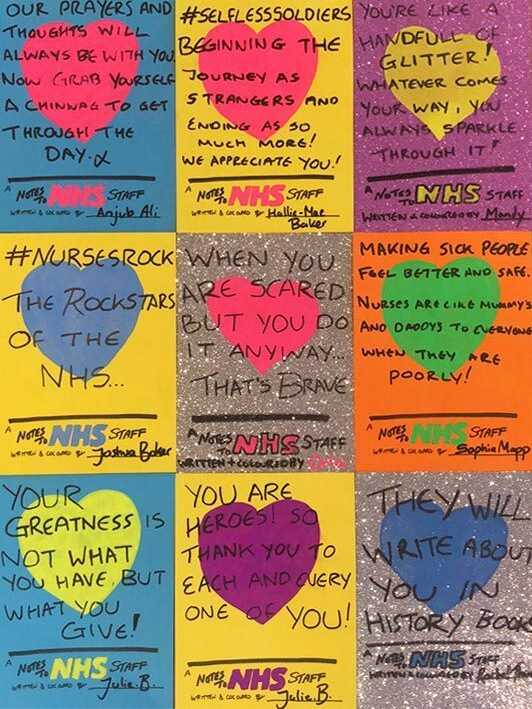 OUR PRAYERS AND
THOUGHTS WILL
ALWAYS BE WITH YOU
NOW GRAB YOURSELF
A CHINWAG TO GET
THROUGH THE
DAY. X
A NOTES TO NHS STAFF
WRITTEN & COLOURED BY Anjub Ali
#SELFLESSSOLDIERS
BEGINNING THE
JOURNEY AS
STRANGERS AND
ENDING AS SO
MUCH MORE!
WE APPRECIATE YOU!
A NOTES TO NHS STAFF
WRITTEN & COLOURED BY Hallie-Mae
Baker
YOU'RE LIKE A
HANDFULL OF
GLITTER!
WHATEVER COMES
YOUR WAY, YOU
ALWAYS SPARKLE
THROUGH IT!
A NOTES TO NHS STAFF
WRITTEN & COLOURED BY Mandy
#NURSESROCK
THE ROCKSTARS
OF THE
NHS...
A NOTES TO NHS STAFF
WRITTEN & COLOURED BY Joshua Baker
WHEN YOU
ARE SCARED
BUT YOU DO
IT ANYWAY...
THAT'S BRAVE
A NOTES TO NHS STAFF
WRITTEN + COLOURED BY
MAKING SICK PEOPLE
FEEL BETTER AND SAFE.
NURSES ARE LIKE MUMMY'S
AND DADDYS TO EVERYONE
WHEN THEY ARE
POORLY!
A NOTES TO NHS STAFF
WRITTEN & COLOURED BY Sophia Mapp
YOUR
GREATNESS IS
NOT WHAT
YOU HAVE, BUT
WHAT YOU
GIVE!
A NOTES TO NHS STAFF
WRITTEN & COLOURED BY Julie. B.
YOU ARE
HEROES! SO
THANK YOU TO
EACH AND EVERY
ONE OF YOU!
A NOTES TO NHS STAFF
WRITTEN & COLOURED BY Julie. B.
THEY WILL
WRITE ABOUT
YOU IN
HISTORY BOOKS
A NOTES TO NHS STAFF
WRITTEN & COLOURED BY Rachel